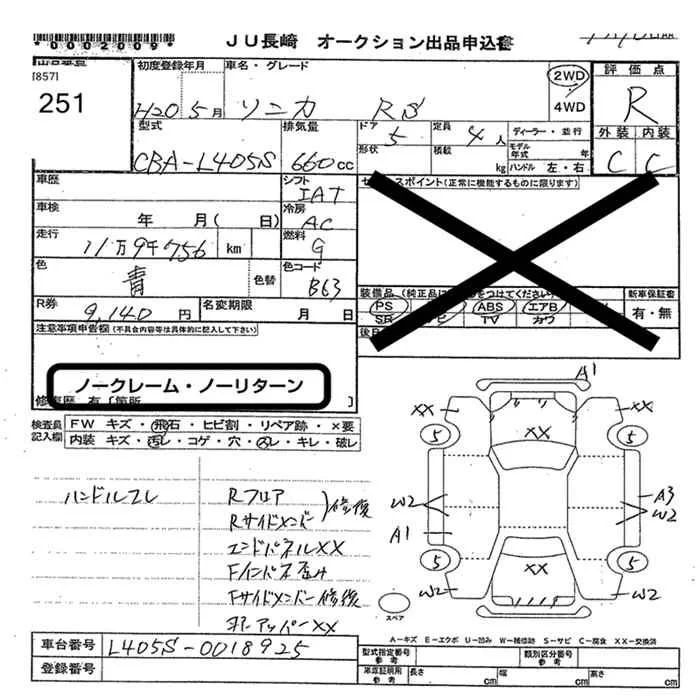 *0002009*
JU長崎 オークション出品申込書
[857]
251
初度登録年月
H20 5月
車名・グレード
ソニカ RS
2WD
4WD
評価点
R
外装 内装
C C
型式
CBA-L405S
排気量
660cc
ドア
5
定員
4人
ディーラー・並行
形状
積載
kg
モデル年式 年
ハンドル 左・右
車歴
シフト
IAT
セールスポイント(正常に機能するものに限ります)
車検
年 月( 日)
冷房
AC
走行
11万9千756 km
燃料
G
色
青
色替
色コード
B63
R券
9,140円
名変期限
月 日
装備品
PS
ABS
エアB
SR
TV
カワ
新車保証書
有・無
注意事項申告欄(不具合内容等は具体的に記入して下さい)
ノークレーム・ノーリターン
修復歴 有 [箇所 ]
検査員記入欄
FW キズ・飛石・ヒビ割・リペア跡・×要
内装 キズ・汚レ・コゲ・穴・スレ・キレ・破レ
ハンドルスレ
Rフロア
Rサイドメンバー
修復
エンドパネルXX
Fインパネ歪み
Fサイドメンバー修復
アッパーXX
A1
XX XX
XX
5 5
W2
A3
W2
A1
5 5
XX
W2 W2
スペア
A-キズ E-エクボ U-凹み W-補修跡 S-サビ C-腐食 XX-交換済
車台番号
L405S-0018925
登録番号
型式指定番号
参考
類別区分番号
参考
車庫証明用
参考
長さ cm
幅 cm
高さ cm